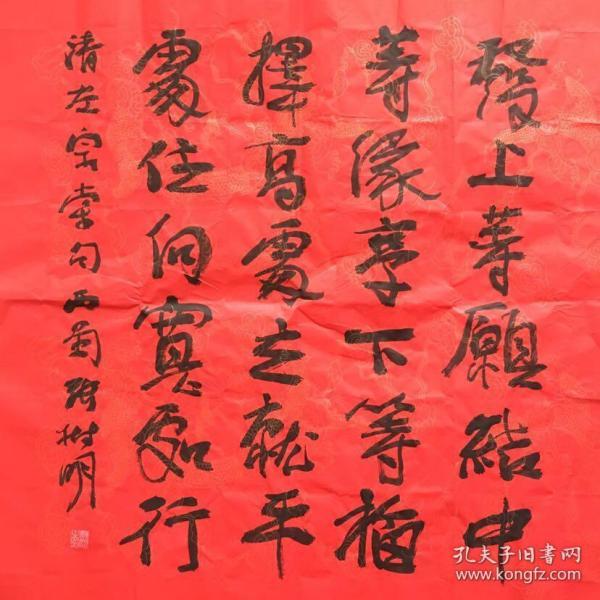 發上等願結中
等緣享下等福
擇高處立就平
處住向寬處行
清左宗棠句西蜀張樹明
孔夫子旧书网
www.kongfz.com